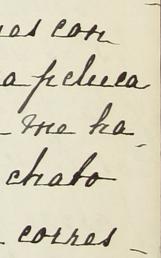 as con
a peluca
me ha-
chato
corres-